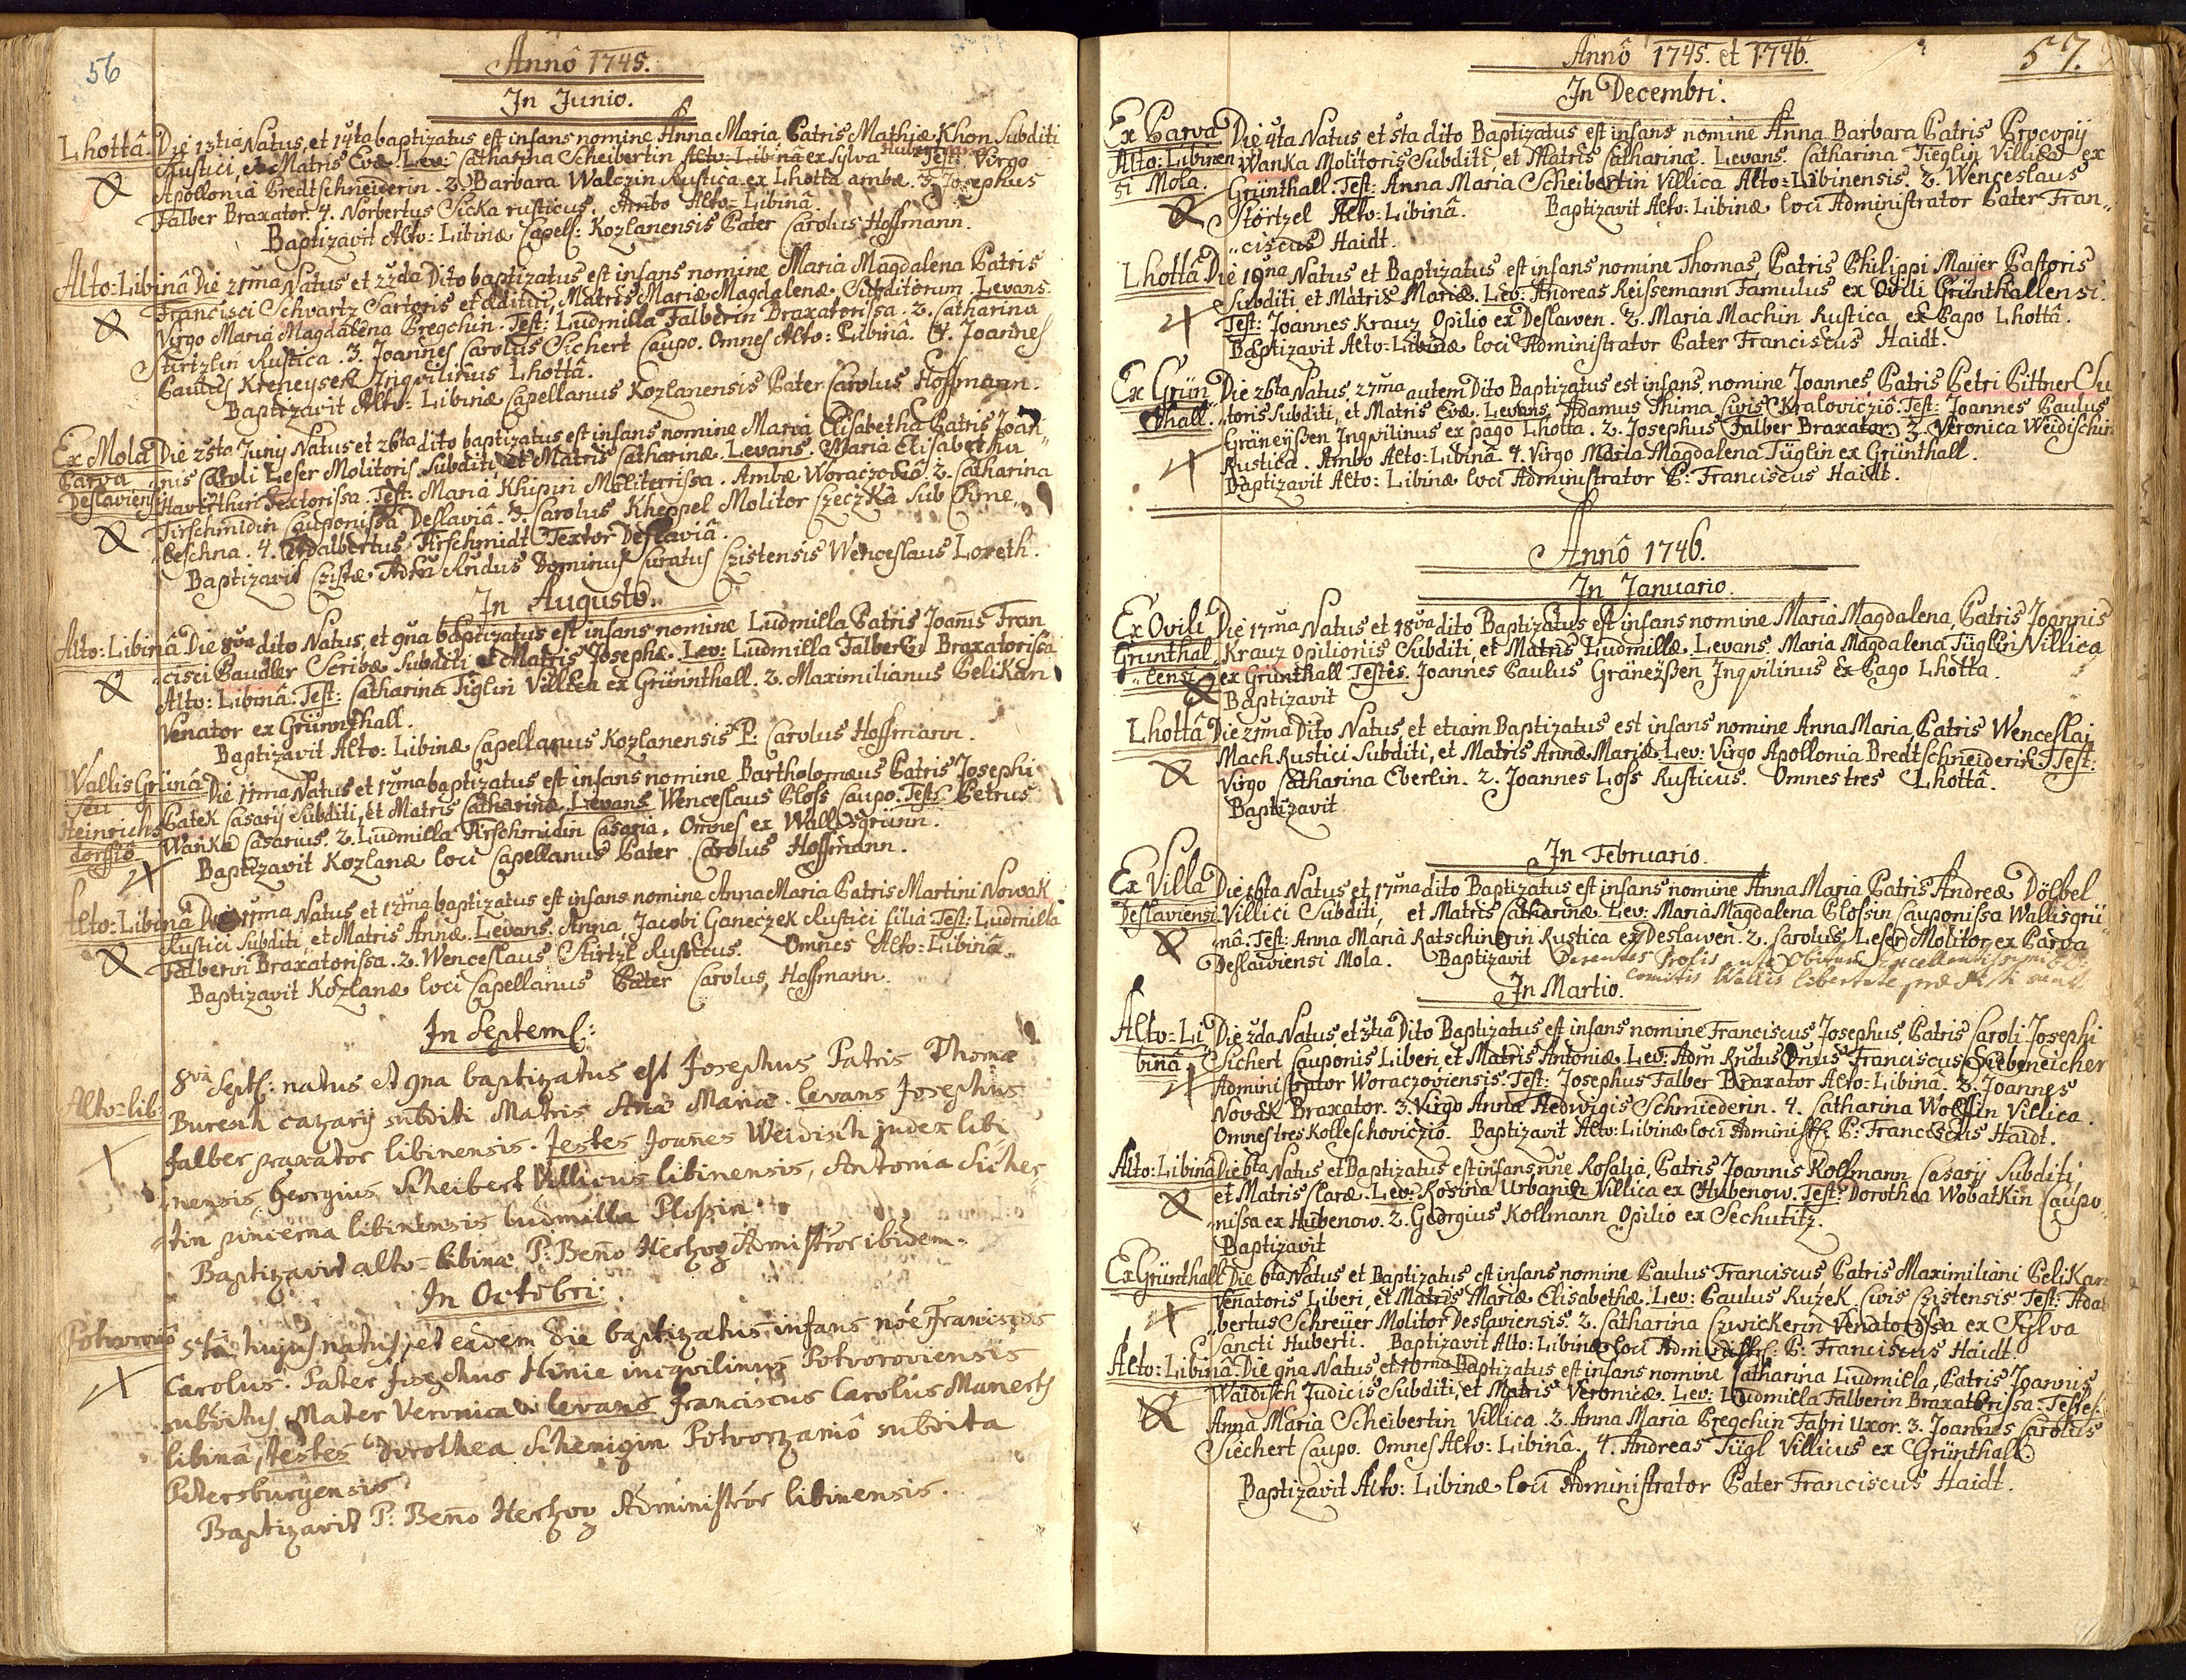 56
Annô 1745.
In Junio.
Lhottâ. Die 13tia Natus, et 14ta baptizatus est infans nomine Anna Maria Patris Mathiæ Khon Subditi
Rustici, et Matris Evæ. Lev: Catharina Scheibertin Alto: Libinâ ex Sylva Huberti. Test: Virgo
Apollonia Bredtschneiderin. 2. Barbara Walczin Rustica ex Lhotta ambæ. 3. Josephus
Falber Braxator. 4. Norbertus Sicka rusticus. Ambo Alto: Libinâ.
Baptizavit Alto: Libinæ Capel: Kozlanensis Pater Carolus Hoffmann.
Alto: Libinâ Die 21ma Natus et 22da Dito baptizatus est infans nomine Maria Magdalena Patris
Francisci Schwartz Sartoris et ædítui, Matris Mariæ Magdalenæ Subditorum. Levans
Virgo Maria Magdalena Pregchin. Test: Ludmilla Falberin Braxatorissa. 2. Catharina
Stirtzlin Rustica. 3. Joannes Carolus Sichert Caupo. Omnes Alto: Libinâ. 4. Joannes
Paulus Kreneysen Inqvilinus Lhottâ.
Baptizavit Alto: Libinæ Capellanus Kozlanensis Pater Carolus Hoffmann.
Ex Mola Die 25ta Junij Natus et 26ta dito baptizatus est infans nomine Maria Elisabetha Patris Joan„
Parva „nis Caroli Leser Molitoris Subditi, et Matris Catharinæ. Levans. Maria Elisabetha
Deslaviensi Haverthin Textorissa. Test: Maria Khipin Moliterissa. Ambæ Woraczovæ. 2. Catharina
Firschmidin Cauponissa Deslaviâ. 3. Carolus Kheppel Molitor Czeczka sub Chme„
„leschna. 4. Adalbertus Firschmidt Textor Deslaviâ.
Baptizavit Czistæ Adm Rndus Dominus Curatus Czistensis Wenceslaus Loreth.
In Augusto.
Alto: Libinâ Die 8va dito Natus, et 9na baptizatus est infans nomine Ludmilla Patris Joanis Fran
„cisci Baudler Scribæ Subditi et Matris Josephæ. Lev: Ludmilla Falberin Braxatorissa
Alto: Libinâ. Test: Catharina Tiglin Villica ex Grünnthall. 2. Maximilianus Pelikan
Venator ex Grünnthall.
Baptizavit Alto: Libinæ Capellanus Kozlanensis P. Carolus Hoffmann.
Wallis Grünâ Die 11ma Natus et 12ma baptizatus est infans nomine Bartholomæus Patris Josephi
seu Patek Casarij Subditi, et Matris Catharinæ. Levans Wenceslaus Ploss Caupo. Test: Petrus
Heinrichs Wanka Casarius. 2. Ludmilla Firschmidin Casaria. Omnes ex Wallisgrünn.
dorffiô Baptizavit Kozlanæ loci Capellanus Pater Carolus Hoffmann.
Alto: Libinâ Die 11ma Natus et 12ma baptizatus est infans nomine Anna Maria Patris Martini Nowak
Rustici Subditi, et Matris Annæ. Levans. Anna, Jacobi Ganeczek Rustici filia Test: Ludmilla
Falberin Braxatorissa. 2. Wenceslaus Stirtzl Rusticus. Omnes Alto: Libinâ.
Baptizavit Kozlanæ loci Capellanus Pater Carolus Hoffmann.
In Septemb:
Alto=lib: 8va Septb: natus et 9na baptizatus est Josephus Patris Thomæ
Buresch cazarij subditi Matris Anæ Mariæ. levans Josephus
falber praxator libinensis. Testes Joanes Weidisch judex libi
„nensis, Georgius Scheibert Villicus libinensis, Antonia Sicher
„tin pincerna libinensis ludmilla Plossin.
Baptizavit alto=libinæ P: Beno Hertzog Administror ibidem.
In Octobri.
Potvorovô 5ta hujus natus, et eadem die baptizatus infans noe Franciscus
Carolus. Pater Josephus Hinie incqvilinus Potvoroviensis
subditus, Mater Veronica levans franciscus Carolus Manerth
libinâ, testes Dorothea Schenigin Potvorzaniô subdita
Petersburgensis.
Baptizavit P: Beno Hertzog Administror libinensis.
57.
Annô 1745. et 1746.
In Decembri.
Ex Parva Die 4ta Natus et 5ta dito Baptizatus est infans nomine Anna Barbara Patris Procopij
Alto: Libinen Wanka Molitoris Subditi, et Matris Catharinæ. Levans. Catharina Tieglin Villica ex
si Mola. Grünthall. Test: Anna Maria Scheibertin Villica Alto=Libinensis. 2. Wenceslaus
Störtzel Alto: Libinâ. Baptizavit Alto: Libinæ loci Administrator Pater Fran„
„ciscus Haidt.
Lhottâ Die 19na Natus et Baptizatus est infans nomine Thomas, Patris Philippi Maijer Pastoris
Subditi et Matris Mariæ. Lev: Andreas Reissemann Famulus ex Ovili Grünthallensi.
Test: Joannes Krauz Opilio ex Deslawen. 2. Maria Machin Rustica ex Pago Lhottâ.
Baptizavit Alto: Libinæ loci Administrator Pater Franciscus Haidt.
Ex Grün Die 26ta Natus, 27ma autem Dito Baptizatus est infans nomine Joannes, Patris Petri Bittner Su
thall. „toris Subditi, et Matris Evæ. Levans. Adamus Thima Civis Kraloviczio. Test: Joannes Paulus
Gräneyßen Inqvilinus ex pago Lhotta. 2. Josephus Falber Braxator. 3. Veronica Weidischin
Rustica. Ambo Alto: Libinâ. 4. Virgo Maria Magdalena Tüglin ex Grünthall.
Baptizavit Alto: Libinæ loci Administrator P: Franciscus Haidt.
Annô 1746.
In Januario.
Ex Ovili Die 17ma Natus et 18va dito Baptizatus est infans nomine Maria Magdalena, Patris Joannis
Grünthal „Krauz Opilionis Subditi, et Matris Ludmillæ. Levans. Maria Magdalena Tüglin Villica
„lensi ex Grünthall Testes. Joannes Paulus Gräneyßen Inqvilinus Ex Pago Lhotta.
Baptizavit
Lhottâ Die 21ma Dito Natus, et etiam Baptizatus est infans nomine Anna Maria, Patris Wenceslai
Mach Rustici Subditi, et Matris Annæ Mariæ. Lev: Virgo Apollonia Bredtschneiderin. Test:
Virgo Catharina Eberlin. 2. Joannes Loss Rusticus. Omnes tres Lhottâ.
Baptizavit
In Februario.
Ex Villa Die 16ta Natus et 17ma dito Baptizatus est infans nomine Anna Maria Patris Andreæ Dölbel
Deslaviensi Villici Subditi, et Matris Catharinæ. Lev: Maria Magdalena Plossin Cauponissa Wallisgrü„
„nâ. Test: Anna Maria Ratschinerin Rustica ex Deslawen. 2. Carolus Leser Molitor ex Parva
Deslawiensi Mola. Baptizavit Parentes Prolis ante Obitum Excellentissimi
Comitis Wallis libertate
In Martio.
Alto: Li Die 2da Natus, et 3tia Dito Baptizatus est infans nomine Franciscus Josephus, Patris Caroli Josephi
binâ. Sichert Cauponis Liberi, et Matris Antoniæ. Lev: Adm Rndus Dnus Franciscus Siebeneicher
Administrator Woraczoviensis. Test: Josephus Falber Braxator Alto: Libinâ. 2. Joannes
Nowak Braxator. 3. Virgo Anna Hedwigis Schmiederin. 4. Catharina Wolffin Villica.
Omnes tres Kolleschoviczio. Baptizavit Alto: Libinæ loci Administr: P: Franciscus Haidt.
Alto: Libinâ Die 6ta Natus et Baptizatus est infans nne Rosalia, Patris Joannis Kollmann Casarij Subditi,
et Matris Claræ. Lev: Rosina Urbanin Villica ex Hubenow. Test: Dorothea Wobatkin Caupo„
„nissa ex Hubenow. 2. Georgius Kollmann Opilio ex Sechutitz.
Baptizavit
Ex Grünthall Die 6ta Natus et Baptizatus est infans nomine Paulus Franciscus Patris Maximiliani Pelikan
Venatoris Liberi, et Matris Mariæ Elisabethæ. Lev: Paulus Ruzek Civis Czistensis. Test: Adal
„bertus Schreüer Molitor Deslaviensis. 2. Catharina Szwickerin Venatorissa ex Sylva
Sancti Huberti. Baptizavit Alto: Libinæ loci Administr: P: Franciscus Haidt.
Alto: Libinâ. Die 9na Natus et 10ma Baptizatus est infans nomine Catharina Ludmilla, Patris Joannis
Waidisch Judicis Subditi, et Matris Veronicæ. Lev: Ludmilla Falberin Braxatorissa. Testes:
Anna Maria Scheibertin Villica. 2. Anna Maria Pregchin Fabri Uxor. 3. Joannes Carolus
Siechert Caupo. Omnes Alto: Libinâ. 4. Andreas Tügl Villicus ex Grünthall.
Baptizavit Alto: Libinæ loci Administrator Pater Franciscus Haidt.